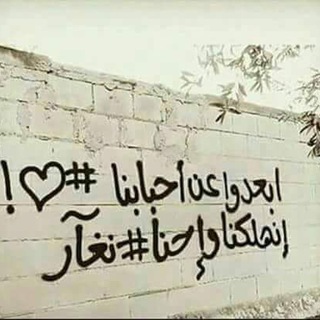 ابعدوا عن احبابنا #♡!
إنهلكنا وإحنا#نغآر